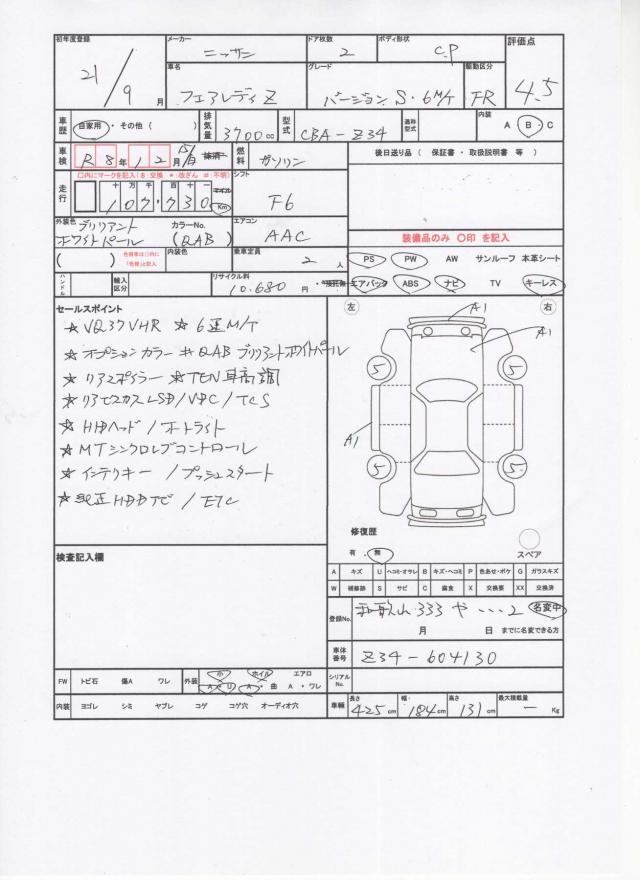 初年度登録 メーカー ニッサン ドア枚数 2 ボディ形状 C.P 評価点
21/9月 車名 フェアレディZ グレード バージョンS・6M/T 駆動区分 FR 4.5
車歴 自家用・その他( ) 排気量 3700cc 型式 CBA-Z34 通称型式 内装 A B・C
車検 R8年12月 抹消 燃料 ガソリン 後日送り品( 保証書・取扱説明書 等 )
□内にマークを記入(8:交換 *:改ざん #:不明)
走行 十 万 千 百 十 一 マイル シフト
107,730 Km F6
外装色 ブリリアント カラーNo. エアコン
ホワイトパール (QAB) AAC 装備品のみ 〇印 を記入
( ) 色替車は〇内に「色替」と記入 内装色 乗車定員 2人 PS PW AW サンルーフ 本革シート
ハンドル 輸入区分 リサイクル料 10.680円 エアバック ABS ナビ TV キーレス
セールスポイント 左 右
A1
☆VQ37VHR ☆6速M/T A1
☆オプションカラー#QAB ブリリアントホワイトパール
☆リアスポイラー ☆TEN車高調 5 5
☆リアビスカスLSD/VDC/TCS
☆HIDヘッド/オートライト
☆MTシンクロレブコントロール A1
☆インテリキー/プッシュスタート 5 5
☆純正HDDナビ/ETC
修復歴
有・無 スペア
検査記入欄
A キズ U ヘコミ・オサレ B キズ・ヘコミ P 色あせ・ボケ G ガラスキズ
W 補修跡 S サビ C 腐食 X 交換要 XX 交換済
登録No. 和歌山 333 や ・・・2 名変中
月 日 までに名変できる方
車体番号 Z34-604130
FW トビ石 傷A ワレ 外装 小 ホイル エアロ シリアルNo.
A・U A・曲 A・ワレ
内装 ヨゴレ シミ ヤブレ コゲ コゲ穴 オーディオ穴 車輌 長さ 425cm 幅 184cm 高さ 131cm 最大積載量 - Kg